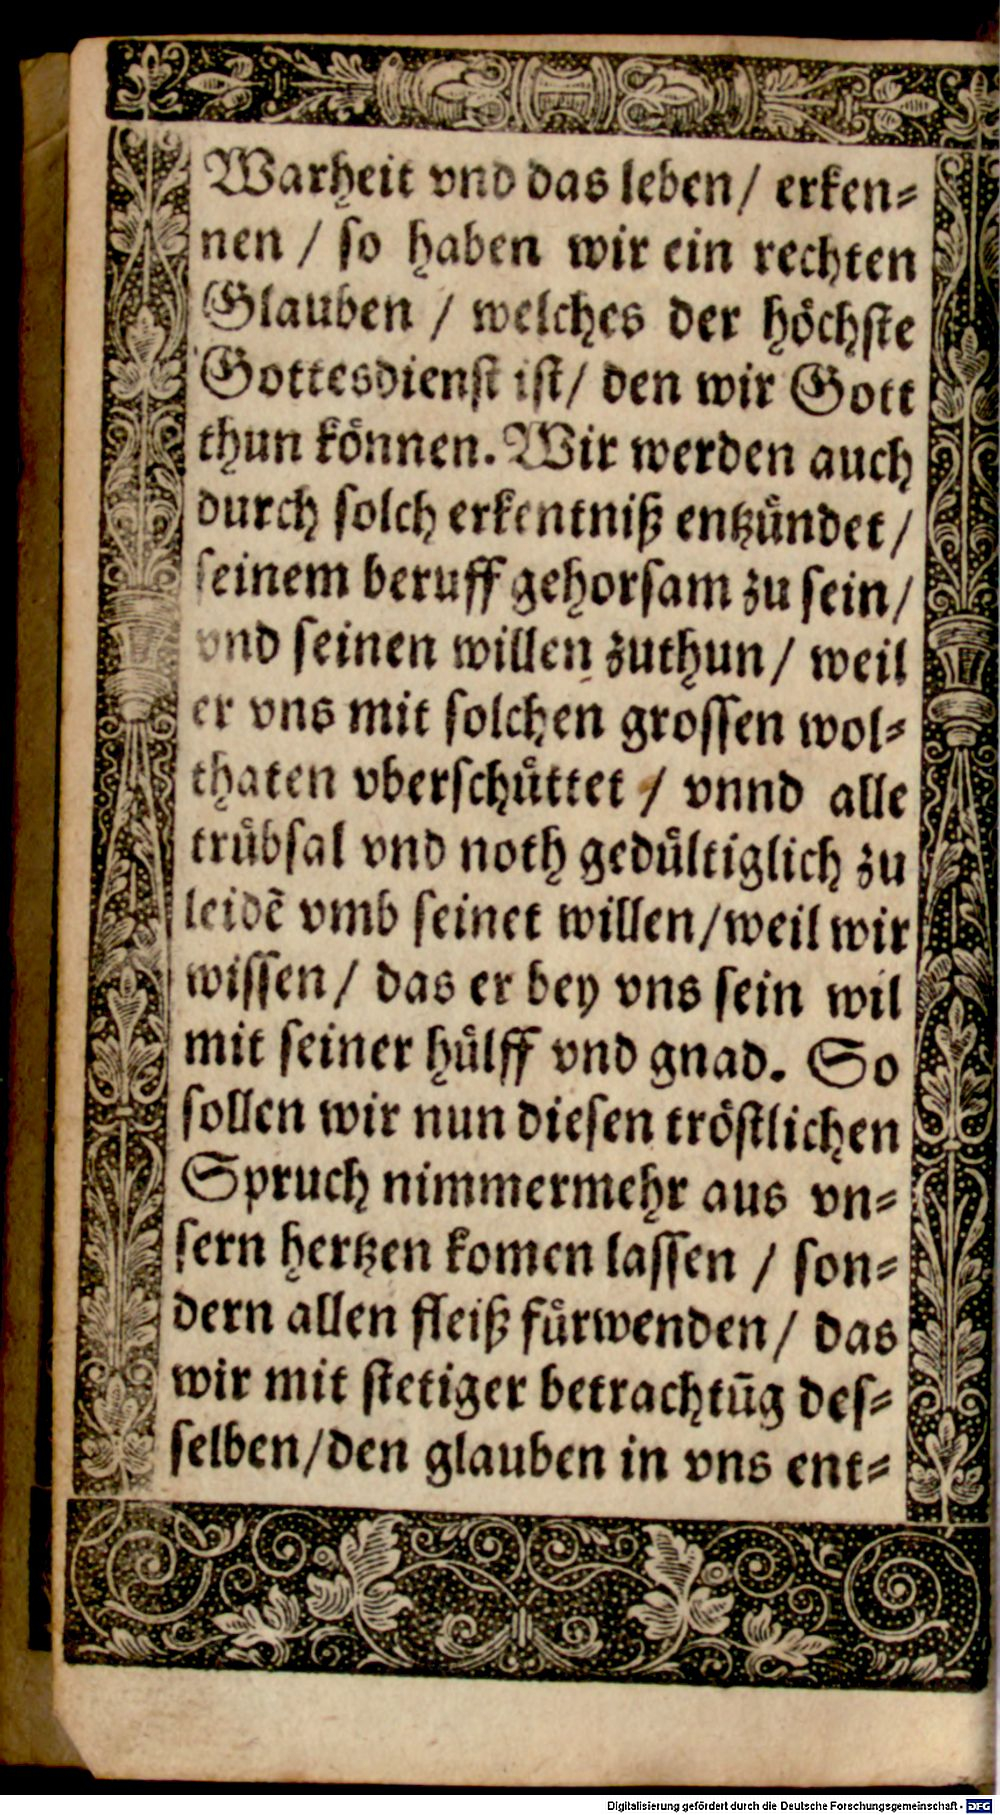 Warheit vnd das leben/ erken⸗
nen / so haben wir ein rechten
Glauben / welches der hoͤchste
Gottesdienst ist/ den wir Gott
thun koͤnnen. Wir werden auch
durch solch erkentniß entzuͤndet/
seinem beruff gehorsam zu sein/
vnd seinen willen zuthun/ weil
er vns mit solchen grossen wol⸗
thaten vberschuͤttet / vnnd alle
truͤbsal vnd noth geduͤltiglich zu
leidẽ vmb seinet willen/weil wir
wissen/ das er bey vns sein wil
mit seiner huͤlff vnd gnad. So
sollen wir nun diesen troͤstlichen
Spruch nimmermehr aus vn⸗
sern hertzen komen lassen / son⸗
dern allen fleiß fuͤrwenden/ das
wir mit stetiger betrachtũg des⸗
selben/den glauben in vns ent⸗
Digitalisierung gefördert durch die Deutsche Forschungsgemeinschaft - DFG